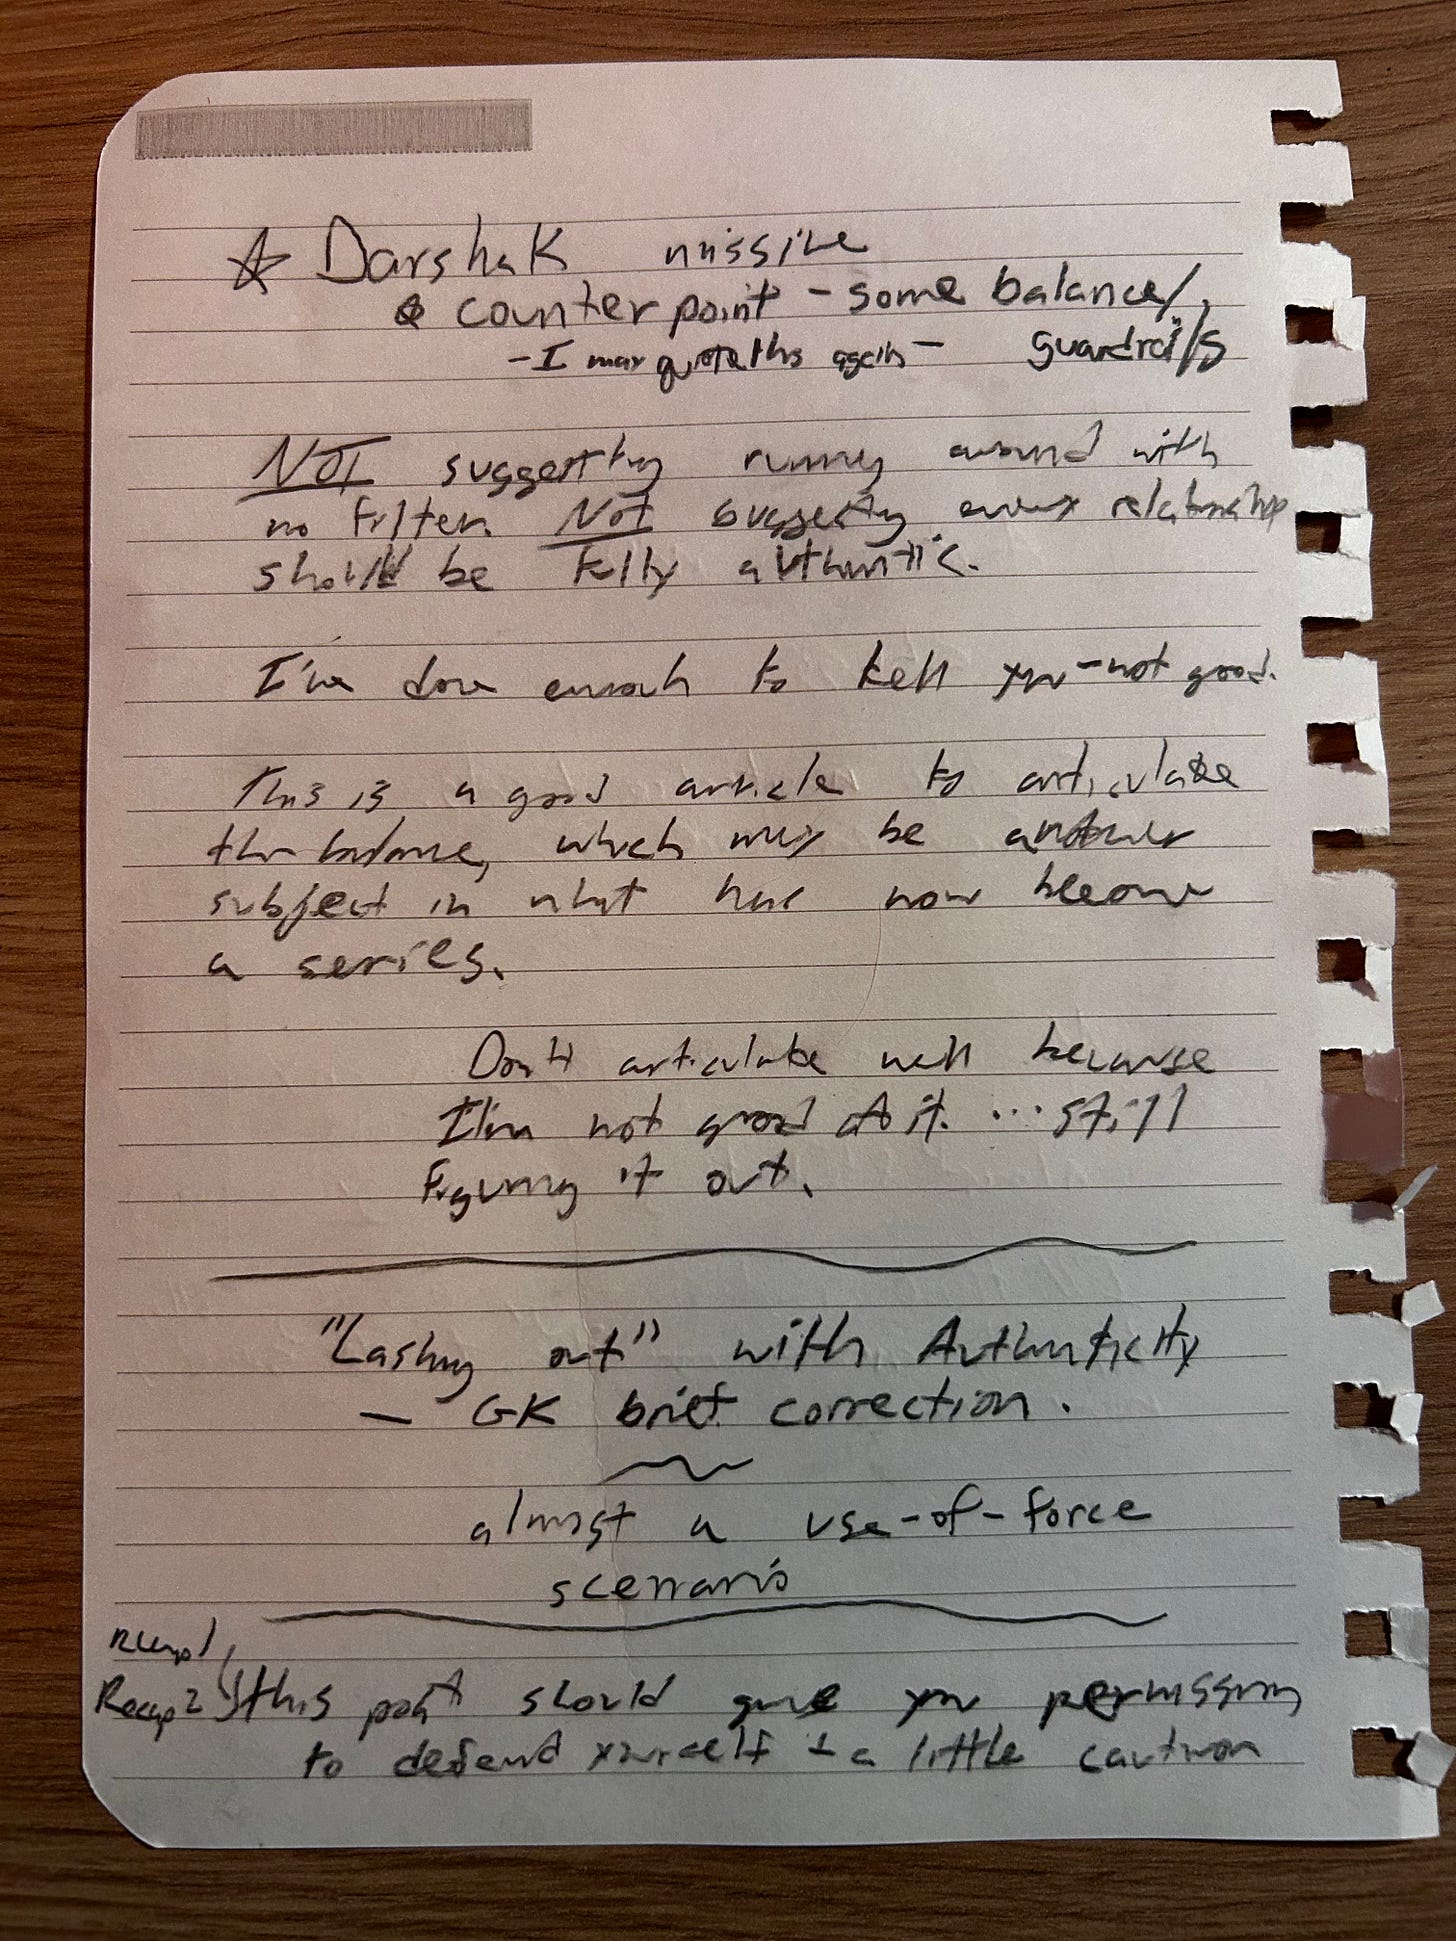 ☆ Darshak missive
counterpoint - some balance/
- I may quote this again - guardrails
NOT suggesting running around with
no filter. Not suggesting every relationship
should be fully authentic.
I've done enough to tell you - not good.
This is a good article to articulate
the balance, which may be another
subject in what has now become
a series.
Don't articulate well because
I'm not good at it. ... still
Figuring it out.
"Lashing out" with Authenticity
— GK brief correction.
almost a use-of-force
scenario
Recap 1
Recap 2 } this post should give you permission
to defend yourself + a little caution